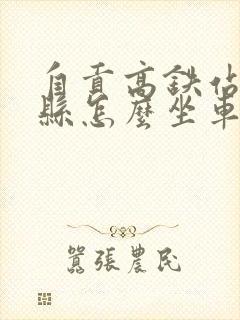 自貢高鉄佔
縣怎麼坐車
囂張農民